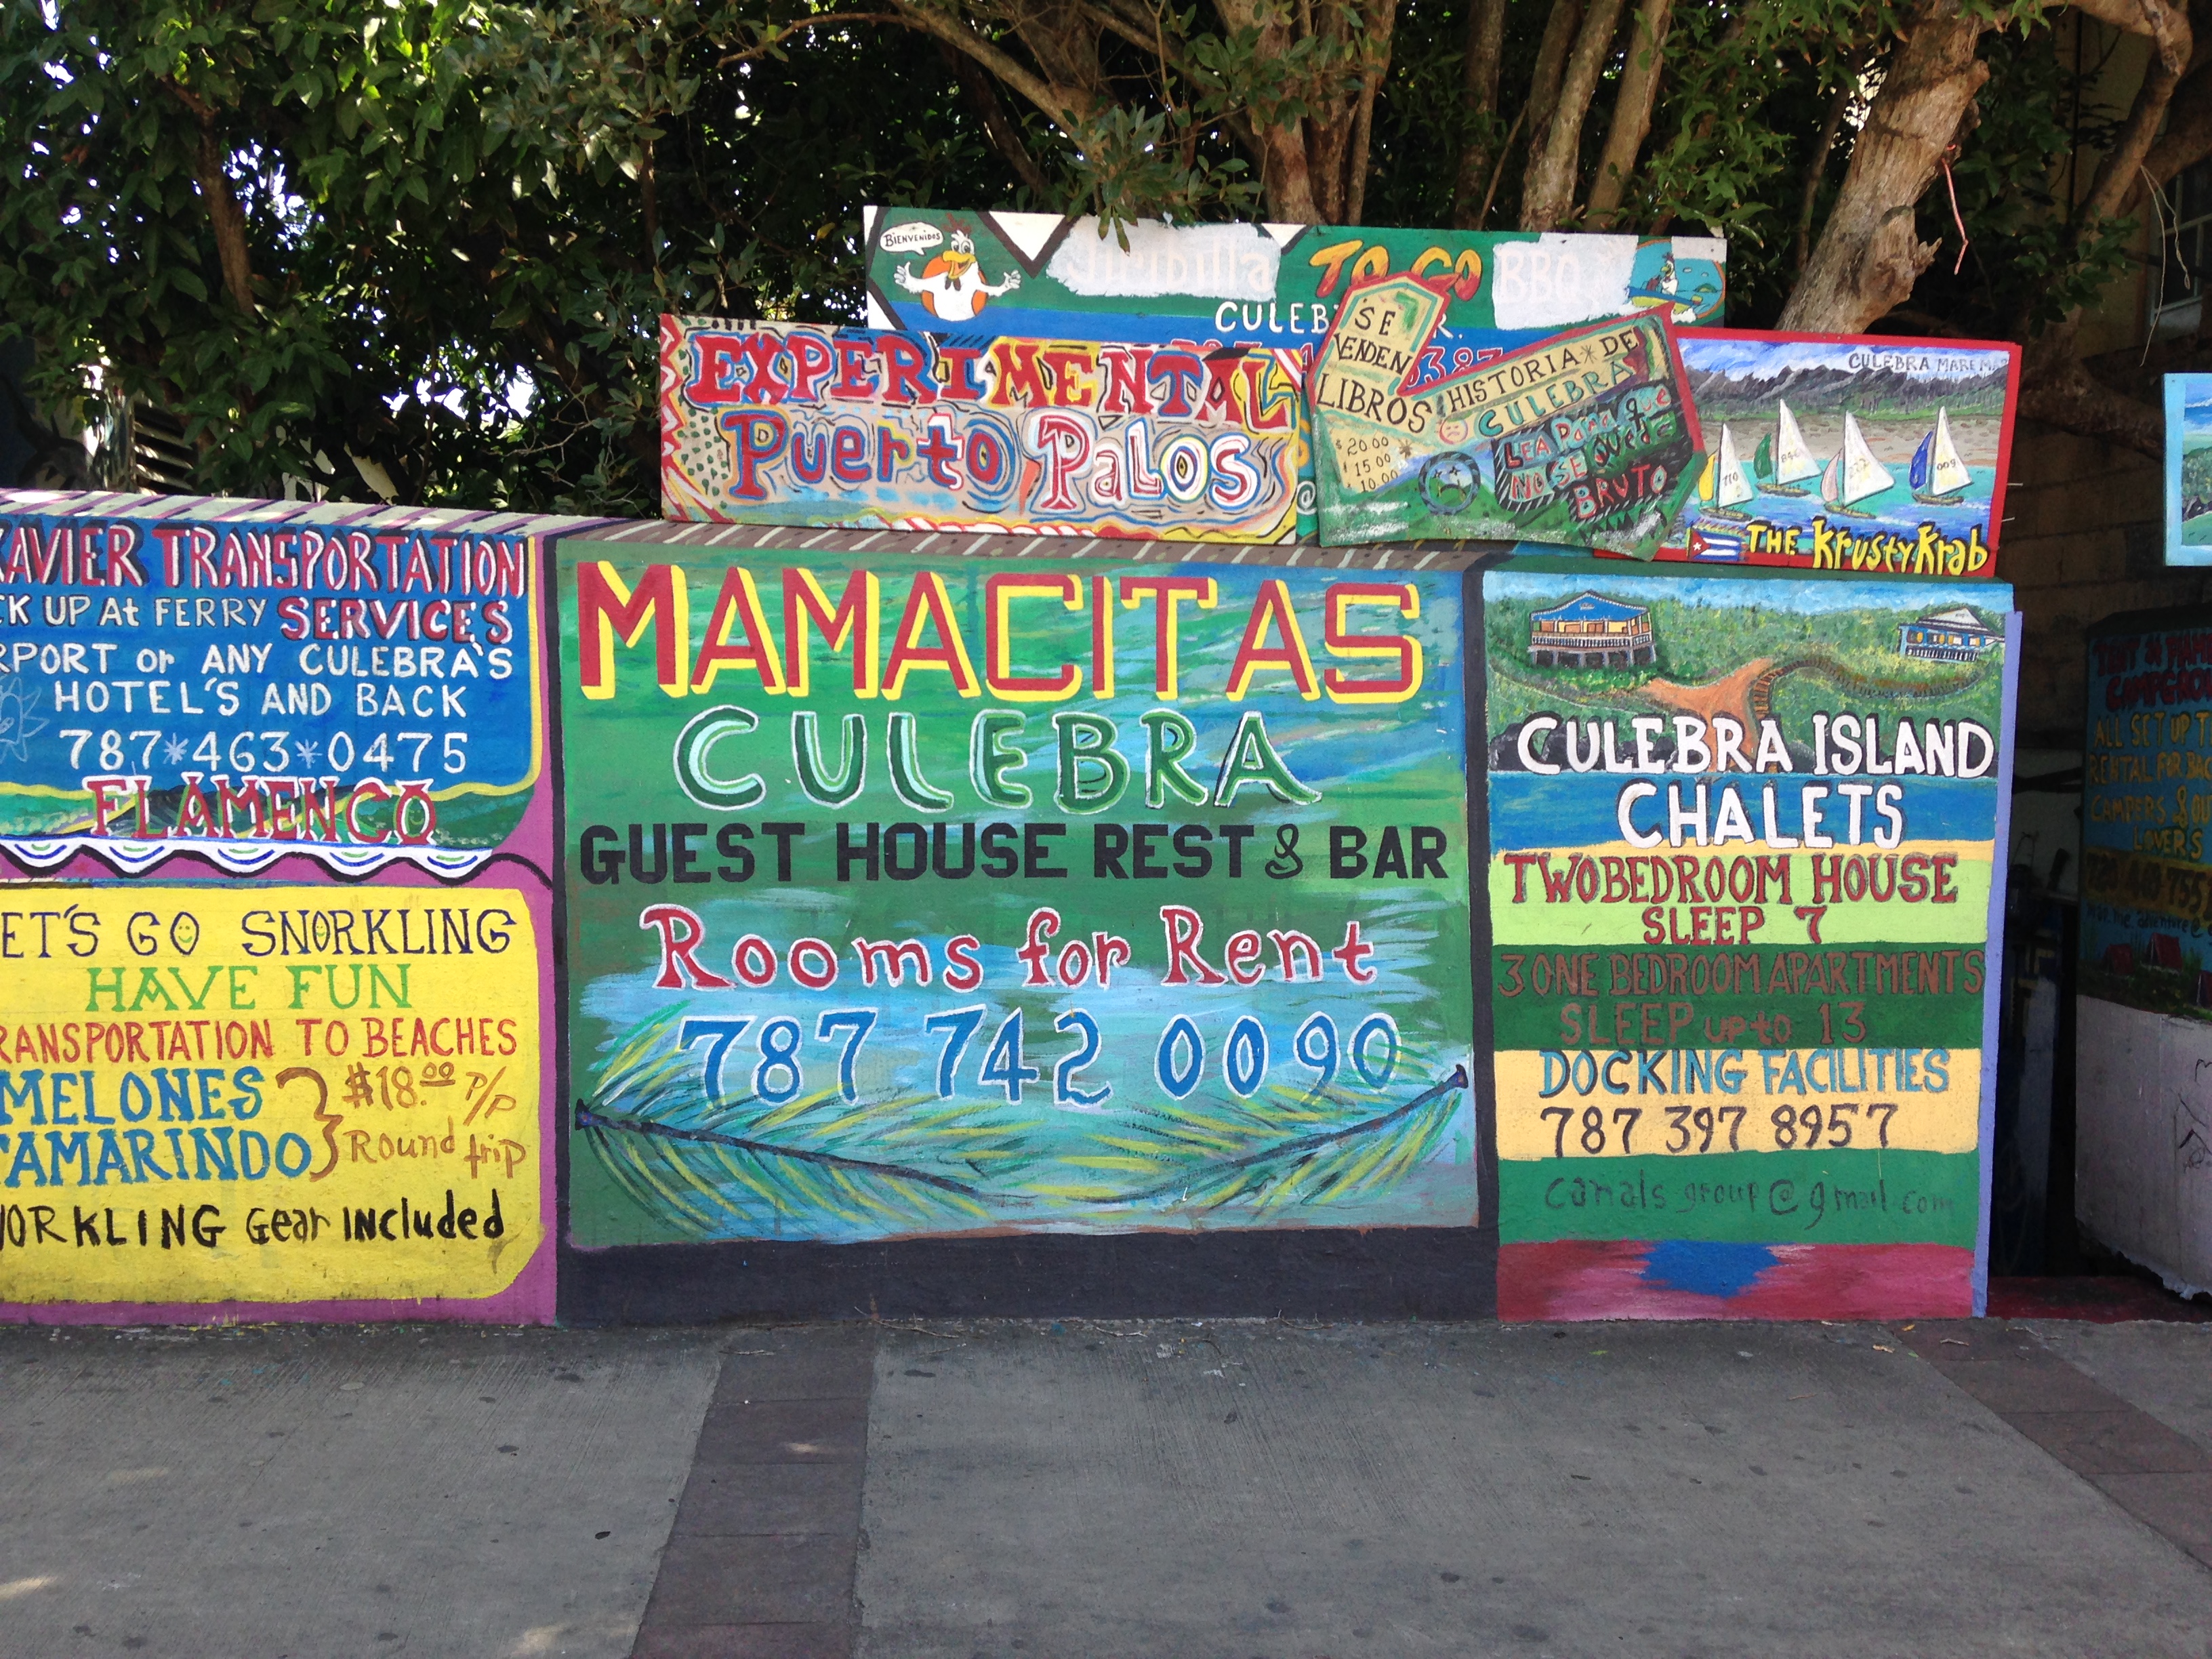 BIENVENIDOS
TO GO BBQ
CULEB
EXPERIMENTAL
Puerto PaLos
SE
VENDEN
LIBROS
$ 20.00
$ 15.00
10.00
HISTORIA * DE
CULEBRA
LEA PaRa que
NO SE QUEDE
BRUTO
CULEBRA MARE MA
110
222
009
THE KrustyKrab
XAVIER TRANSPORTATION
CK UP At FERRY SERVICES
RPORT or ANY CULEBRA'S
HOTEL'S AND BACK
787*463*0475
FLAMENCO
ET'S GO SNORKLING
HAVE FUN
RANSPORTATION TO BEACHES
MELONES
TAMARINDO
$18.00 P/P
Round trip
ORKLING Gear INcluded
MAMACITAS
CULEBRA
GUEST HOUSE REST & BAR
Rooms for Rent
787 742 0090
CULEBRA ISLAND
CHALETS
TWO BEDROOM HOUSE
SLEEP 7
3 ONE BEDROOM APARTMENTS
SLEEP up to 13
DOCKING FACILITIES
787 397 8957
canals group@gmail.com
ALL SET UP T
RENTAL FOR BAC
CAMPERS & OU
LOVERS